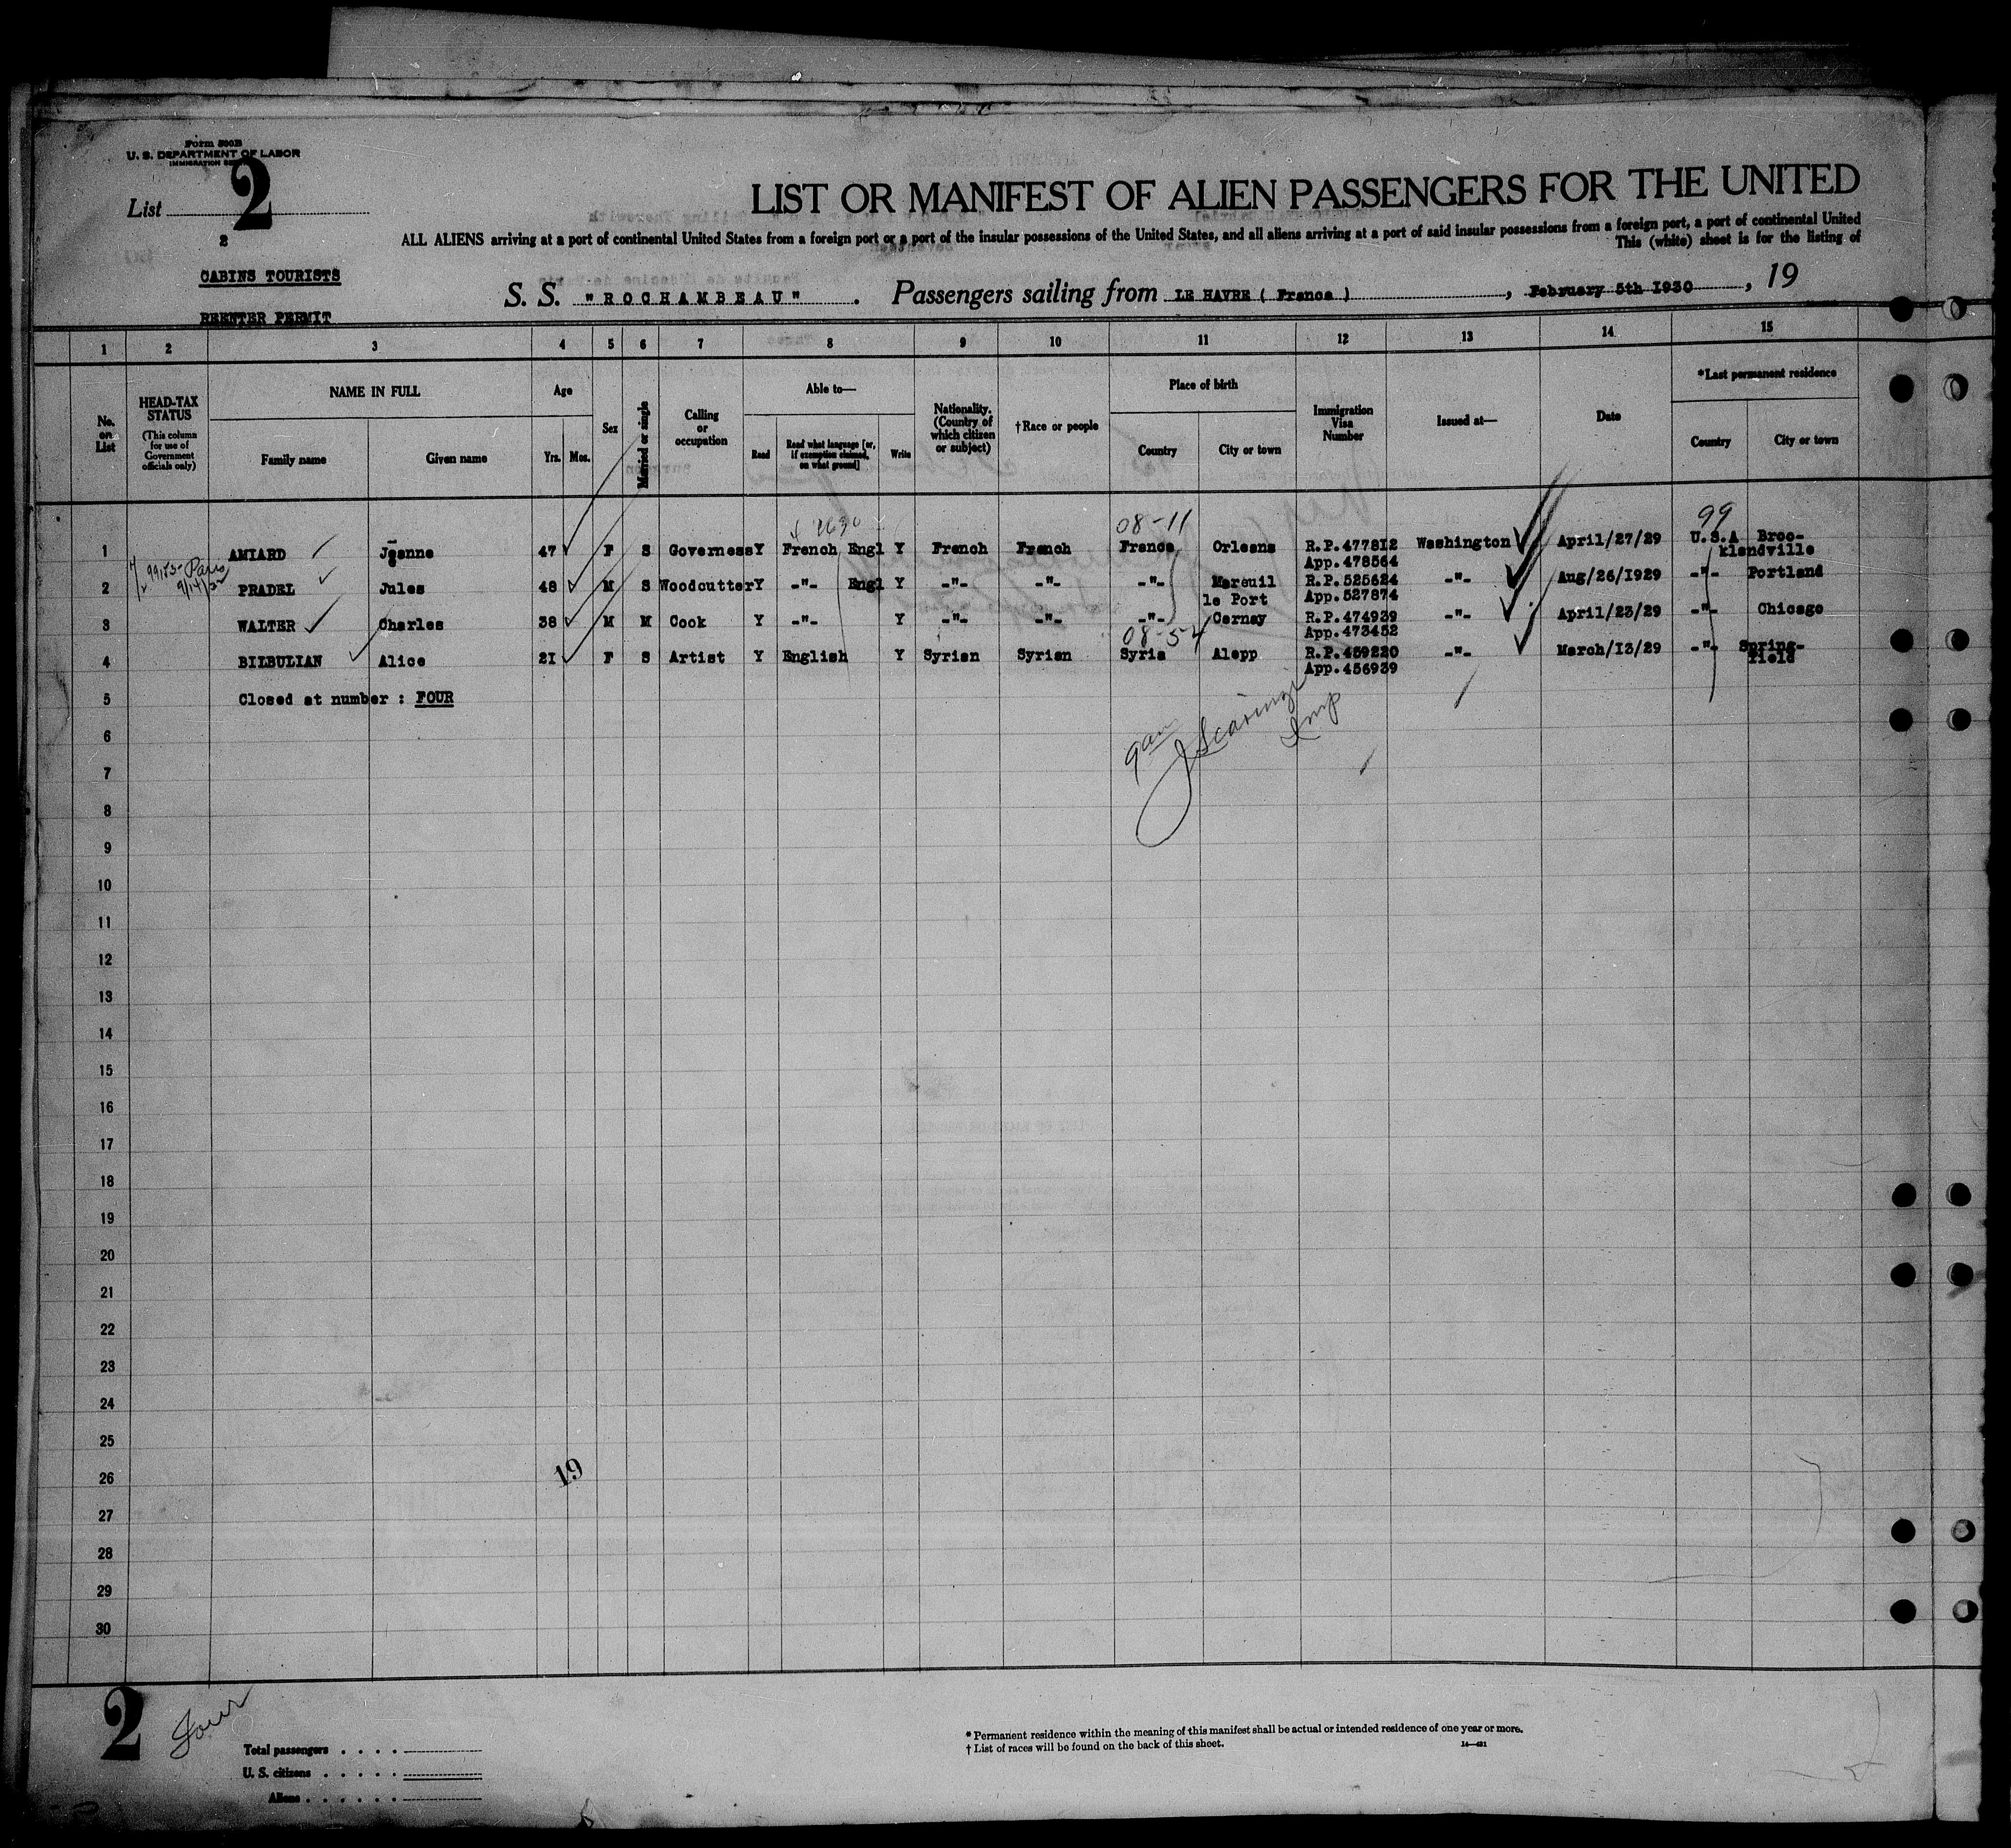 Form 500B
U. S. DEPARTMENT OF LABOR
IMMIGRATION
List 2
2
LIST OR MANIFEST OF ALIEN PASSENGERS FOR THE UNITED
ALL ALIENS arriving at a port of continental United States from a foreign port or a port of the insular possessions of the United States, and all aliens arriving at a port of said insular possessions from a foreign port, a port of continental United
This (white) sheet is for the listing of
CABINS TOURISTS
REENTER PERMIT
S. S. "ROCHAMBEAU". Passengers sailing from LE HAVRE ( France ), February 5th 1930, 19
1 2 3 4 5 6 7 8 9 10 11 12 13 14 15
No. on List
HEAD-TAX STATUS
(This column for use of Government officials only)
NAME IN FULL
Family name
Given name
Age
Yrs. Mos.
Sex
Married or single
Calling or occupation
Able to—
Read
Read what language [or, if exemption claimed, on what ground]
Write
Nationality. (Country of which citizen or subject)
†Race or people
Place of birth
Country
City or town
Immigration Visa Number
Issued at—
Date
*Last permanent residence
Country
City or town
08-11
99
1 AMIARD Jeanne 47 F S Governess Y French Engl Y French French France Orleans R.P.477812 Washington April/27/29 U.S.A Broo-
App.478564 klandville
99185- Paris
9/14/32
2 PRADEL Jules 48 M S Woodcutter Y -"- Engl Y -"- -"- -"- Mareuil R.P.525624 -"- Aug/26/1929 -"- Portland
le Port App.527874
3 WALTER Charles 38 M M Cook Y -"- Y -"- -"- -"- Cernay R.P.474939 -"- April/23/29 -"- Chicago
08-54 App.473452
4 BILBULIAN Alice 21 F S Artist Y English Y Syrian Syrian Syria Alepp R.P.459220 -"- March/13/29 -"- Spring-
App.456939 field
5 Closed at number : FOUR
6
7
8
9
10
11
12
13
14
15
16
17
18
19
20
21
22
23
24
25
26
19
27
28
29
30
2
Four
Total passengers . . . .
U. S. citizens . . . . .
Aliens . . . . . .
* Permanent residence within the meaning of this manifest shall be actual or intended residence of one year or more.
† List of races will be found on the back of this sheet.